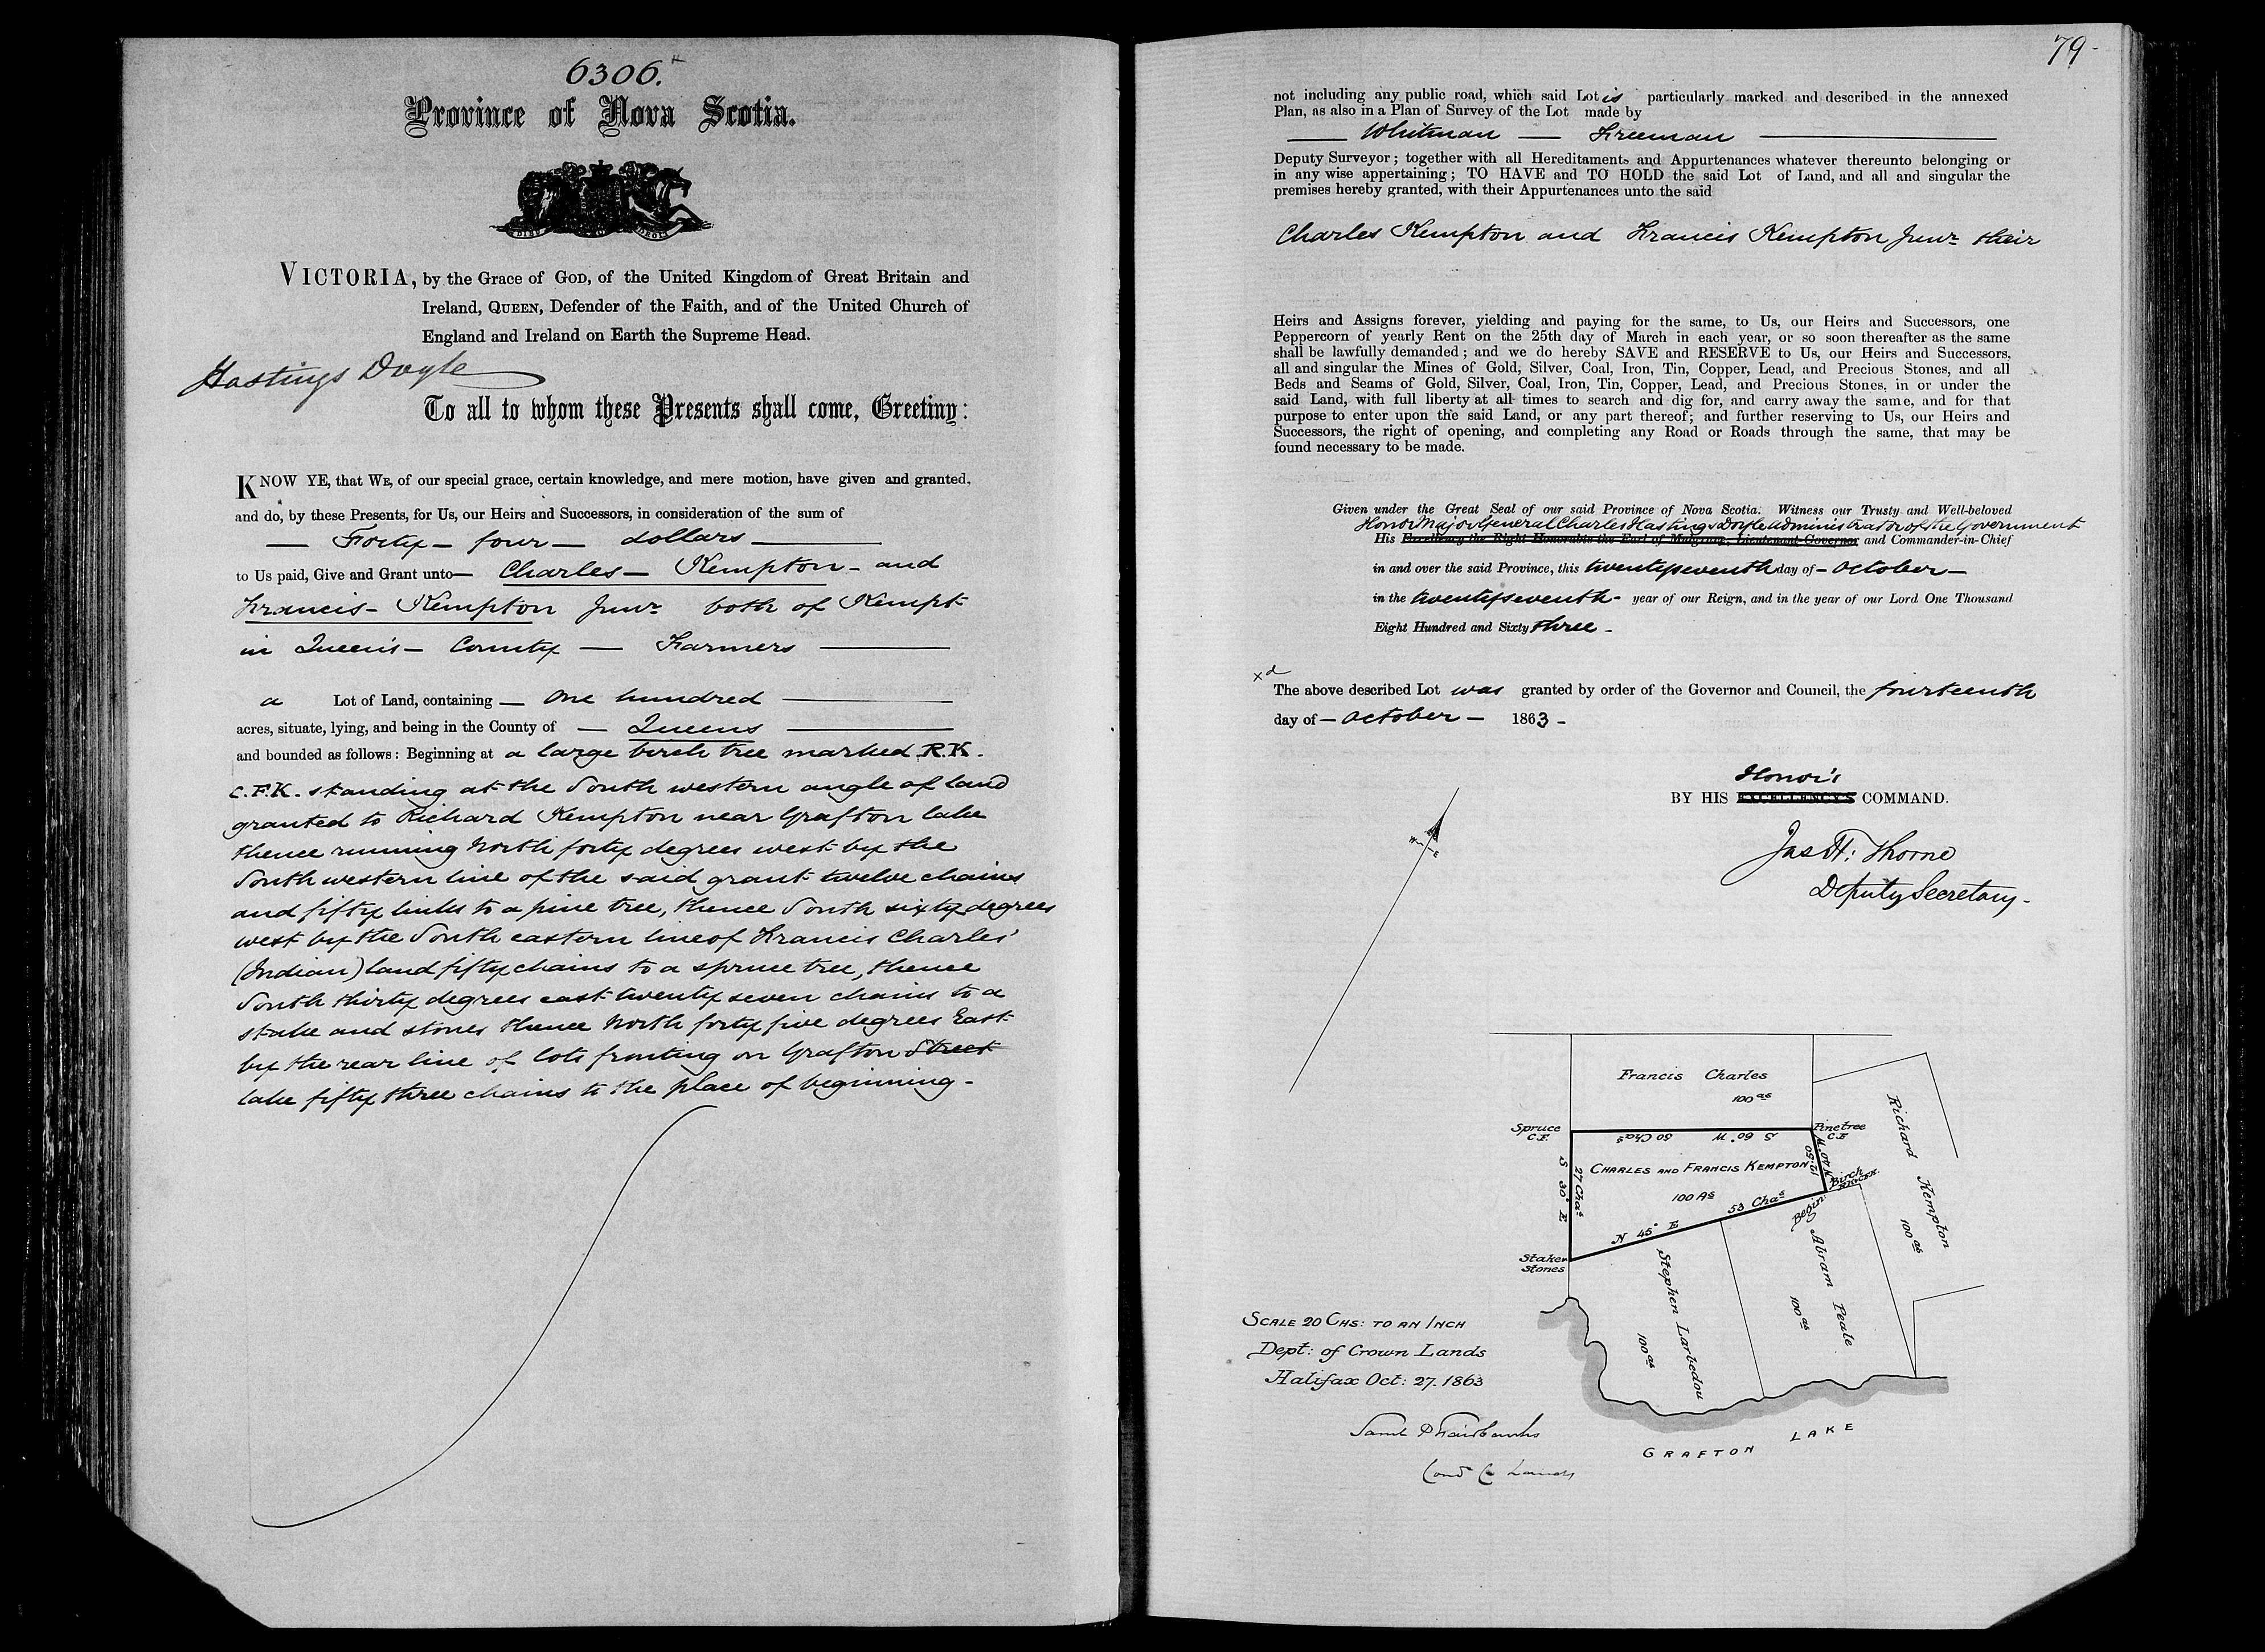 6306.
Province of Nova Scotia.
VICTORIA, by the Grace of GOD, of the United Kingdom of Great Britain and
Ireland, QUEEN, Defender of the Faith, and of the United Church of
England and Ireland on Earth the Supreme Head.
Hastings Doyle
To all to whom these Presents shall come, Greeting:
KNOW YE, that WE, of our special grace, certain knowledge, and mere motion, have given and granted,
and do, by these Presents, for Us, our Heirs and Successors, in consideration of the sum of
— Forty – four — dollars —
to Us paid, Give and Grant unto — Charles — Kempton – and
Francis – Kempton Junr both of Kempt
in Queen's – County — Farmers —
a Lot of Land, containing — One hundred —
acres, situate, lying, and being in the County of — Queens —
and bounded as follows: Beginning at a large birch tree marked R.K.
C.F.K. standing at the South western angle of land
granted to Richard Kempton near Grafton lake
thence running North forty degrees west by the
South western line of the said grant twelve chains
and fifty links to a pine tree, thence South sixty degrees
west by the South eastern line of Francis Charles'
(Indian) land fifty chains to a spruce tree, thence
South thirty degrees east twenty seven chains to a
stake and stones thence North forty five degrees East
by the rear line of lots fronting on Grafton Street
lake fifty three chains to the place of beginning –
79-
not including any public road, which said Lot is particularly marked and described in the annexed
Plan, as also in a Plan of Survey of the Lot made by
— Whitman — Freeman —
Deputy Surveyor; together with all Hereditaments and Appurtenances whatever thereunto belonging or
in any wise appertaining; TO HAVE and TO HOLD the said Lot of Land, and all and singular the
premises hereby granted, with their Appurtenances unto the said
Charles Kempton and Francis Kempton Junr their
Heirs and Assigns forever, yielding and paying for the same, to Us, our Heirs and Successors, one
Peppercorn of yearly Rent on the 25th day of March in each year, or so soon thereafter as the same
shall be lawfully demanded; and we do hereby SAVE and RESERVE to Us, our Heirs and Successors,
all and singular the Mines of Gold, Silver, Coal, Iron, Tin, Copper, Lead, and Precious Stones, and all
Beds and Seams of Gold, Silver, Coal, Iron, Tin, Copper, Lead, and Precious Stones, in or under the
said Land, with full liberty at all times to search and dig for, and carry away the same, and for that
purpose to enter upon the said Land, or any part thereof; and further reserving to Us, our Heirs and
Successors, the right of opening, and completing any Road or Roads through the same, that may be
found necessary to be made.
Given under the Great Seal of our said Province of Nova Scotia. Witness our Trusty and Well-beloved
Honor Major General Charles Hastings Doyle Administrator of the Government
His Excellency the Right Honorable the Earl of Mulgrave, Lieutenant-Governor and Commander-in-Chief
in and over the said Province, this twenty seventh day of – October –
in the twenty seventh – year of our Reign, and in the year of our Lord One Thousand
Eight Hundred and Sixty three –
xd
The above described Lot was granted by order of the Governor and Council, the fourteenth
day of – October – 1863 –
Honor's
BY HIS EXCELLENCY'S COMMAND.
Jas H: Thorne
Deputy Secretary –
Francis Charles
100 as
Spruce
C.F.
S 60° W 50 Chas
Pine tree
C.F.
N 40° W
12.50
Birch
CHARLES AND FRANCIS KEMPTON
100 As
S 30° E
27 Chas
N 45° E 53 Chas
Begin
Stake &
Stones
Richard Kempton
100 as
Abram Peale
100 as
Stephen Larbedou
100 as
GRAFTON LAKE
SCALE 20 CHS: TO AN INCH
Dept: of Crown Lands
Halifax Oct: 27. 1863
Saml P Fairbanks
Comr Cr Lands